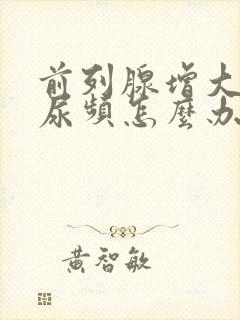 前列腺增大
尿頻怎麼办
黄智敏